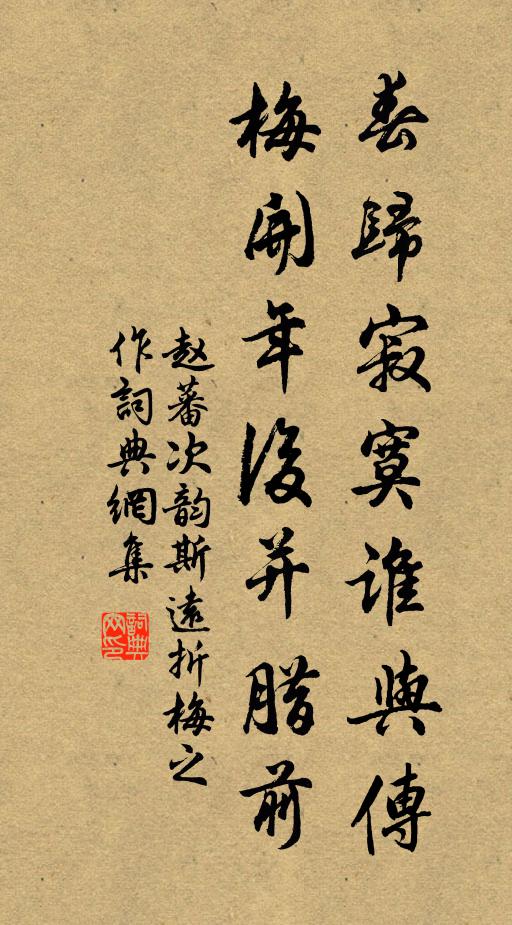 春歸寂寞誰與傳
梅開年後并腊前
赵蕃次韵斯遠折梅之
作詞典網集
詞典網印